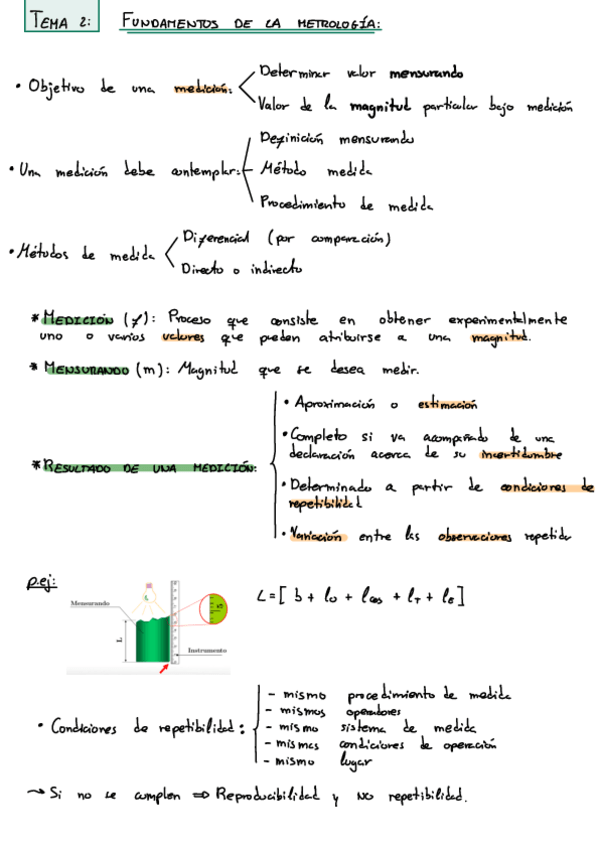 TEMA 2: FUNDAMENTOS DE LA METROLOGÍA:
• Objetivo de una medición:
Determinar valor mensurando
Valor de la magnitud particular bajo medición
• Una medición debe contemplar:
Definición mensurando
Método medida
Procedimiento de medida
• Métodos de medida
Diferencial (por comparación)
Directo o indirecto
* MEDICIÓN (y): Proceso que consiste en obtener experimentalmente
uno o varios valores que pueden atribuirse a una magnitud.
* MENSURANDO (m): Magnitud que se desea medir.
* RESULTADO DE UNA MEDICIÓN:
• Aproximación o estimación
• Completo si va acompañado de una
declaración acerca de su incertidumbre
• Determinado a partir de condiciones de
repetibilidad
• Variación entre las observaciones repetida
p.ej:
Mensurando
L
Instrumento
L = [ b + l₀ + lcos + lT + lE ]
• Condiciones de repetibilidad:
- mismo procedimiento de medida
- mismos operadores
- mismo sistema de medida
- mismas condiciones de operación
- mismo lugar
→ Si no se cumplen ⇒ Reproducibilidad y NO repetibilidad.